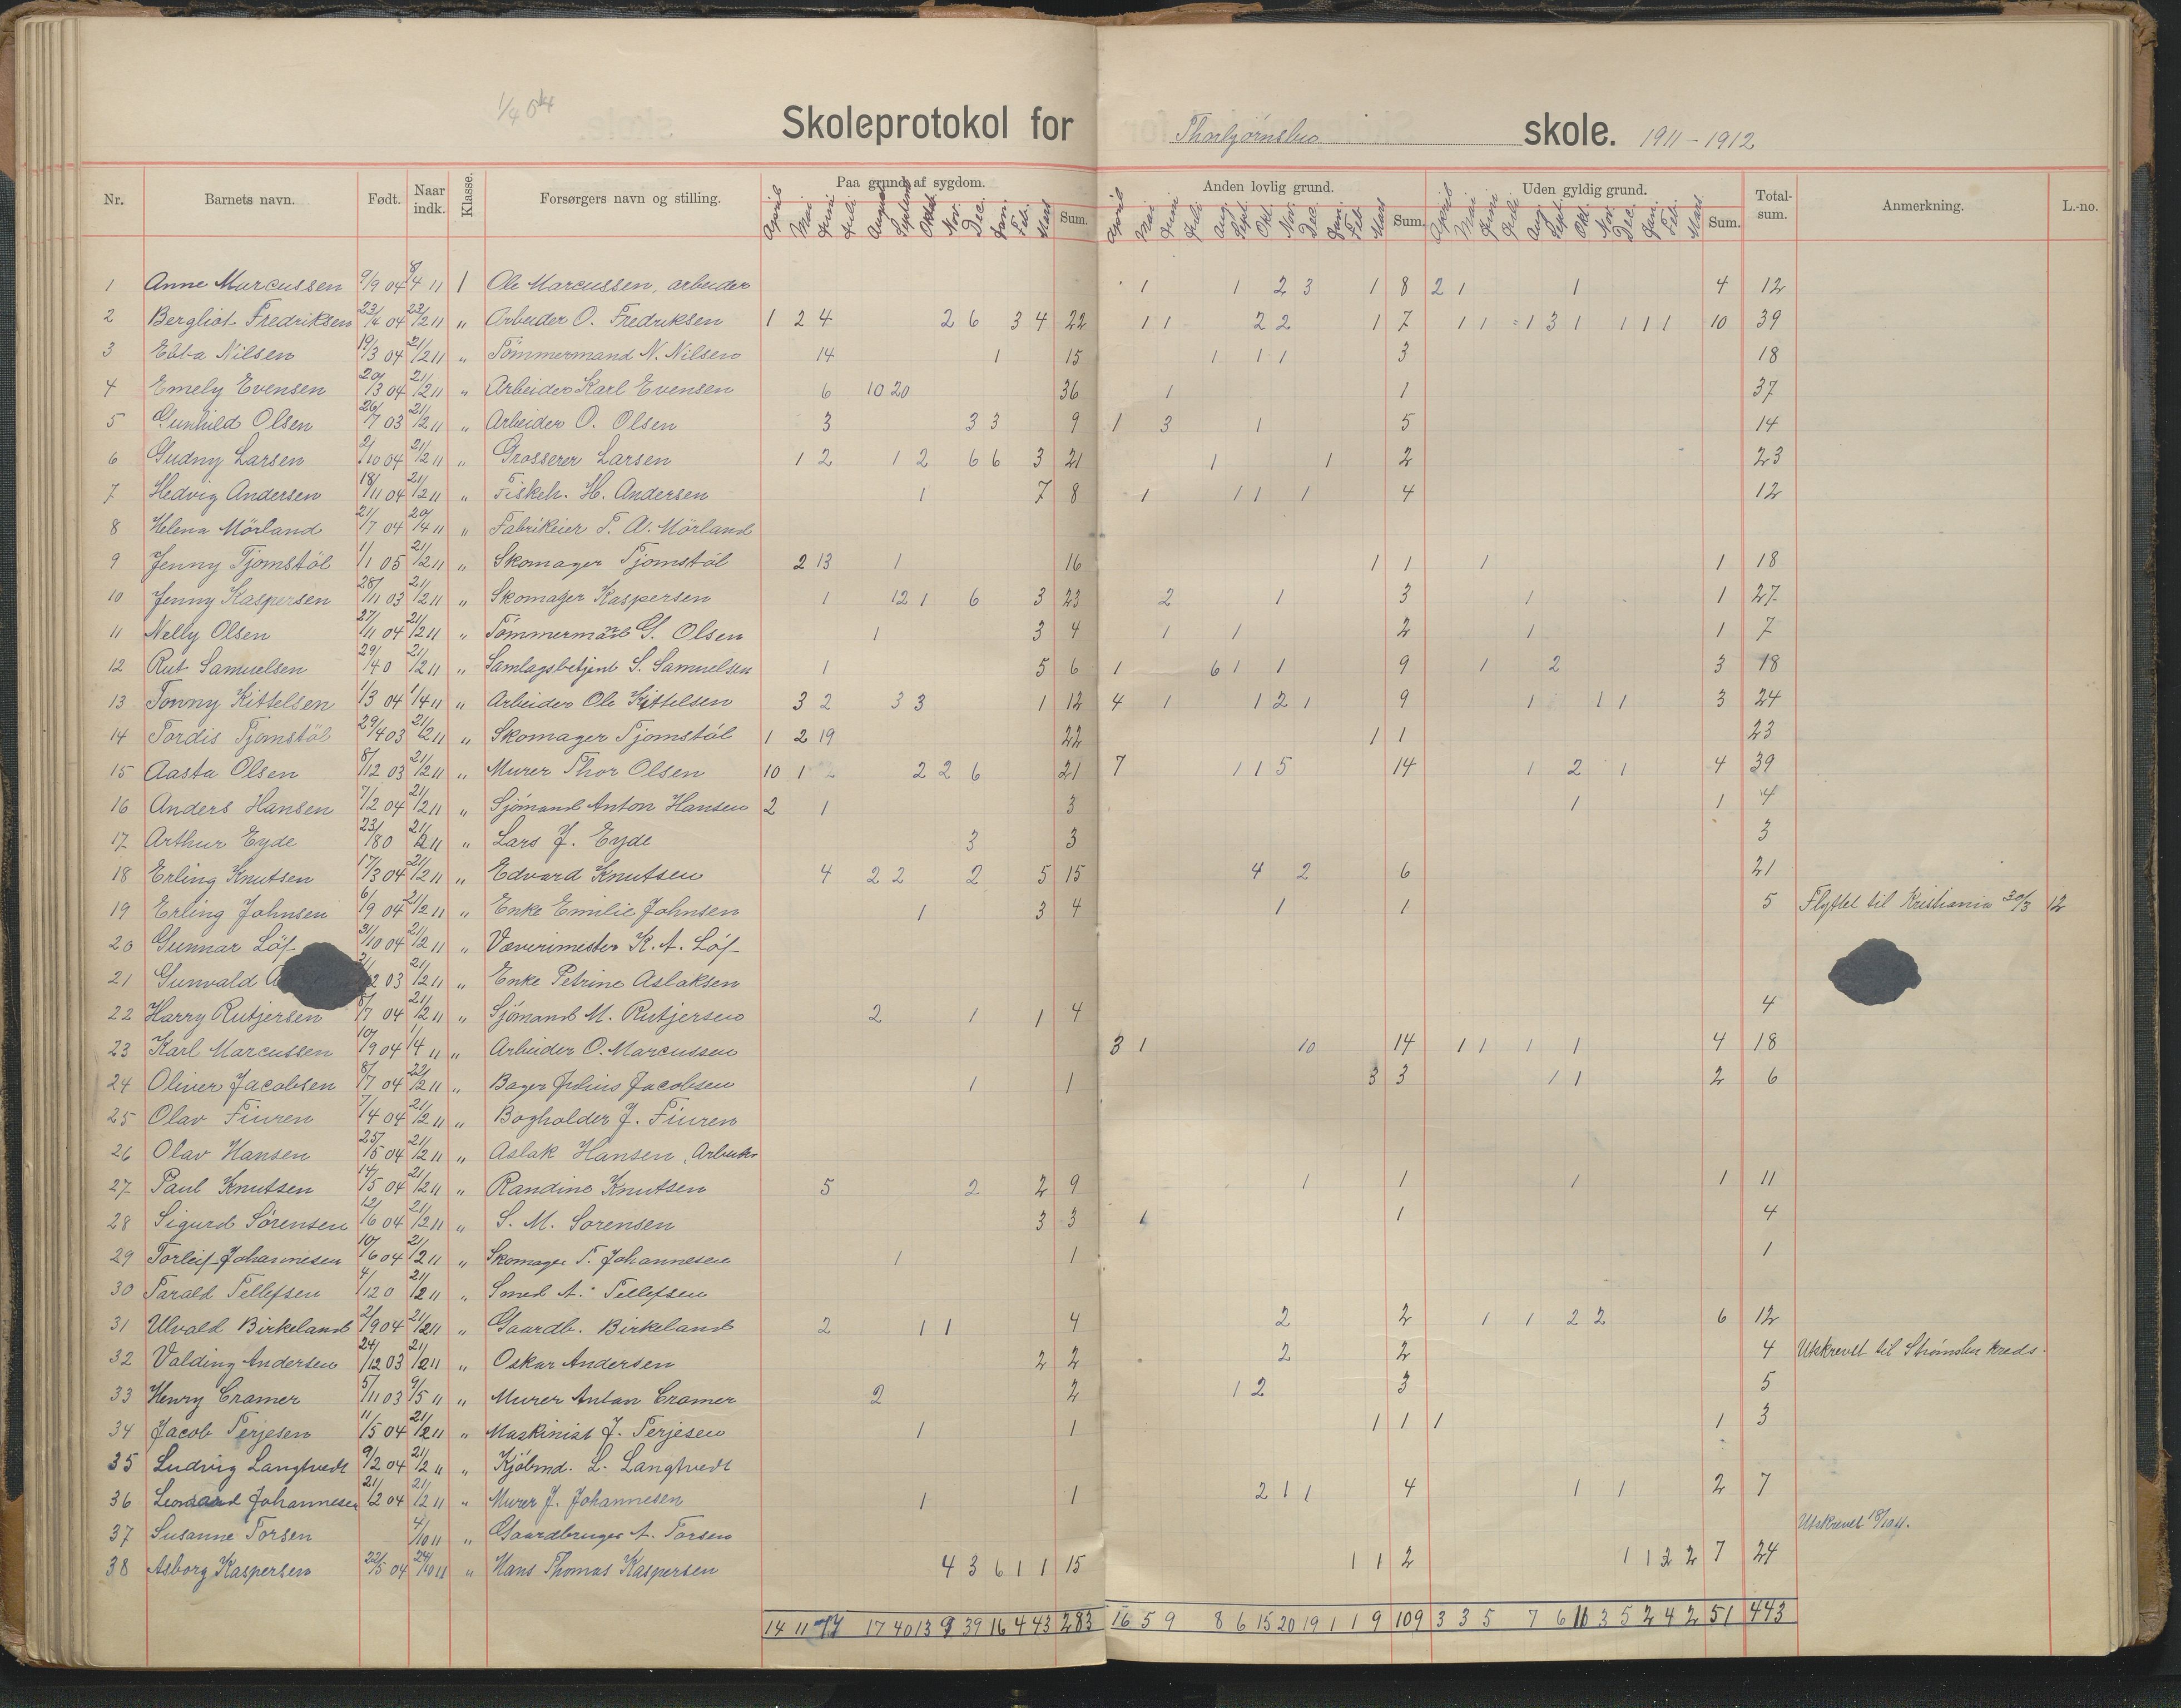 Skoleprotokol for Thorbjørnsbu skole. 1911-1912
Nr. Barnets navn. Født. Naar indk. Klasse. Forsørgers navn og stilling. Paa grund af sygdom. Sum. Anden lovlig grund. Sum. Uden gyldig grund. Sum. Total-sum. Anmerkning. L.-no.
April Mai Juni Juli August Oktob. Nov. Dec. Jan. Feb. Mars April Mai Juni Juli Aug. Sept. Okt. Nov. Dec. Jan. Feb. Mars April Mai Juni Juli Aug. Sept. Okt. Nov. Dec. Jan. Feb. Mars
1 Anne Marcussen 9/9 04 8/4 11 1 Ole Marcussen, arbeider 1 1 2 3 1 8 2 1 1 4 12
2 Bergliot Fredriksen 04 23/2 11 " Arbeider O. Fredriksen 1 2 4 2 6 3 4 22 1 1 2 2 1 7 1 1 1 3 1 1 1 1 10 39
3 Ebba Nilsen 19/3 04 21/2 11 " Tömmermand N. Nilsen 14 1 15 1 1 1 3 18
4 Emely Evensen 20/3 04 21/2 11 " Arbeider Karl Evensen 6 10 20 36 1 1 37
5 Gunhild Olsen 26/7 03 21/2 11 " Arbeider O. Olsen 3 3 3 9 1 3 1 5 14
6 Gudny Larsen 2/10 04 21/2 11 " Grosserer Larsen 1 2 1 2 6 6 3 21 1 1 2 23
7 Hedvig Andersen 18/11 04 21/2 11 " Fiskeh. H. Andersen 1 7 8 1 1 1 1 4 12
8 Helena Mörland 21/7 04 20/4 11 " Fabrikeier T. A. Mörland
9 Jenny Tjomstöl 1/1 05 21/2 11 " Skomager Tjomstöl 2 13 1 16 1 1 1 1 18
10 Jenny Kaspersen 28/11 03 21/2 11 " Skomager Kaspersen 1 12 1 6 3 23 2 1 3 1 1 27
11 Nelly Olsen 27/11 04 21/2 11 " Tömmermand G. Olsen 1 3 4 1 1 2 1 1 7
12 Rut Samuelsen 29/4 0 21/2 11 " Samlagsbetjent S. Samuelsen 1 5 6 1 6 1 1 9 1 2 3 18
13 Tonny Kittelsen 1/3 04 1/4 11 " Arbeider Ole Kittelsen 3 2 3 3 1 12 4 1 1 2 1 9 1 1 1 3 24
14 Tordis Tjomstöl 29/4 03 21/2 11 " Skomager Tjomstöl 1 2 19 22 1 1 23
15 Aasta Olsen 8/12 03 21/2 11 " Murer Thor Olsen 10 1 2 2 6 21 7 1 1 5 14 1 2 1 4 39
16 Anders Hansen 7/2 04 21/2 11 " Sjömand Anton Hansen 2 1 3 1 1 4
17 Arthur Eyde 23/8 0 21/2 11 " Lars J. Eyde 3 3 3
18 Erling Knutsen 17/3 04 21/2 11 " Edvard Knutsen 4 2 2 2 5 15 4 2 6 21
19 Erling Johnsen 6/9 04 21/2 11 " Enke Emilie Johnsen 1 3 4 1 1 5 Flyttet til Kristiania 30/3 12
20 Gunnar Löf 04 21/2 11 " Væverimester K. A. Löf
21 Gunvald 03 21/2 11 " Enke Petrine Aslaksen
22 Harry Rutjersen 8/7 04 21/2 11 " Sjömand M. Rutjersen 2 1 1 4 4
23 Karl Marcussen 10/9 04 1/4 11 " Arbeider O. Marcussen 3 1 10 14 1 1 1 1 4 18
24 Oliver Jacobsen 8/7 04 22/2 11 " Bager Julius Jacobsen 1 1 3 3 1 1 2 6
25 Olav Fiuren 7/4 04 21/2 11 " Bogholder J. Fiuren
26 Olav Hansen 25/5 04 21/2 11 " Aslak Hansen, Arbeider
27 Paul Knutsen 14/5 04 21/2 11 " Randine Knutsen 5 2 2 9 1 1 1 1 11
28 Sigurd Sörensen 12/6 04 21/2 11 " S. M. Sorensen 3 3 1 1 4
29 Torleif Johannesen 10/6 04 21/2 11 " Skomager T. Johannesen 1 1 1
30 Tarald Tellefsen 4/12 0 21/2 11 " Smed A. Tellefsen
31 Ulvald Birkeland 2/9 04 21/2 11 " Gaardb. Birkeland 2 1 1 4 2 2 1 1 2 2 6 12
32 Valding Andersen 24/12 03 21/2 11 " Oskar Andersen 2 2 2 2 4 Utskrevet til Strømsbu kreds.
33 Henry Cramer 5/11 03 9/5 11 " Murer Anton Cramer 2 2 1 2 3 5
34 Jacob Terjesen 11/5 04 21/2 11 " Maskinist J. Terjesen 1 1 1 1 1 1 3
35 Ludvig Langtvedt 9/2 04 21/2 11 " Kjöbmd. L. Langtvedt
36 Leonard Johannesen 21/2 04 21/2 11 " Murer J. Johannesen 1 1 2 1 1 4 1 1 2 7
37 Susanne Torsen 4/10 11 " Gaardbruger A. Torsen Utskrevet 18/10 11.
38 Asborg Kaspersen 22/5 04 24/10 11 " Hans Thomas Kaspersen 4 3 6 1 1 15 1 1 2 1 1 3 2 7 24
14 11 77 17 40 13 9 39 16 4 43 283 16 5 9 8 6 15 20 19 1 1 9 109 3 3 5 7 6 11 3 5 2 4 2 51 443